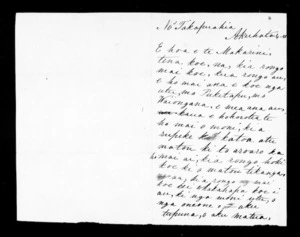 No Takapuahia
Akuhata 4
E hoa e te Makarini,
tena koe, na, kia rongo
mai koe, kia rongo au,
e ho mai ana e koe nga
utu, mo Puketapu, mo
Wairongana, e mea ana au,
kaua e hohorotia te
ho mai o moni, kia
hupeke katoa atu
matou ki to aroaro ka
ho mai ai, kia rongo hoki
koe ki o matou tikanga
kia rongo mai
koe kei whakahapa koe i
au, ki nga moni utu, o
nga oneone o aku
tupuna, o aku matua,